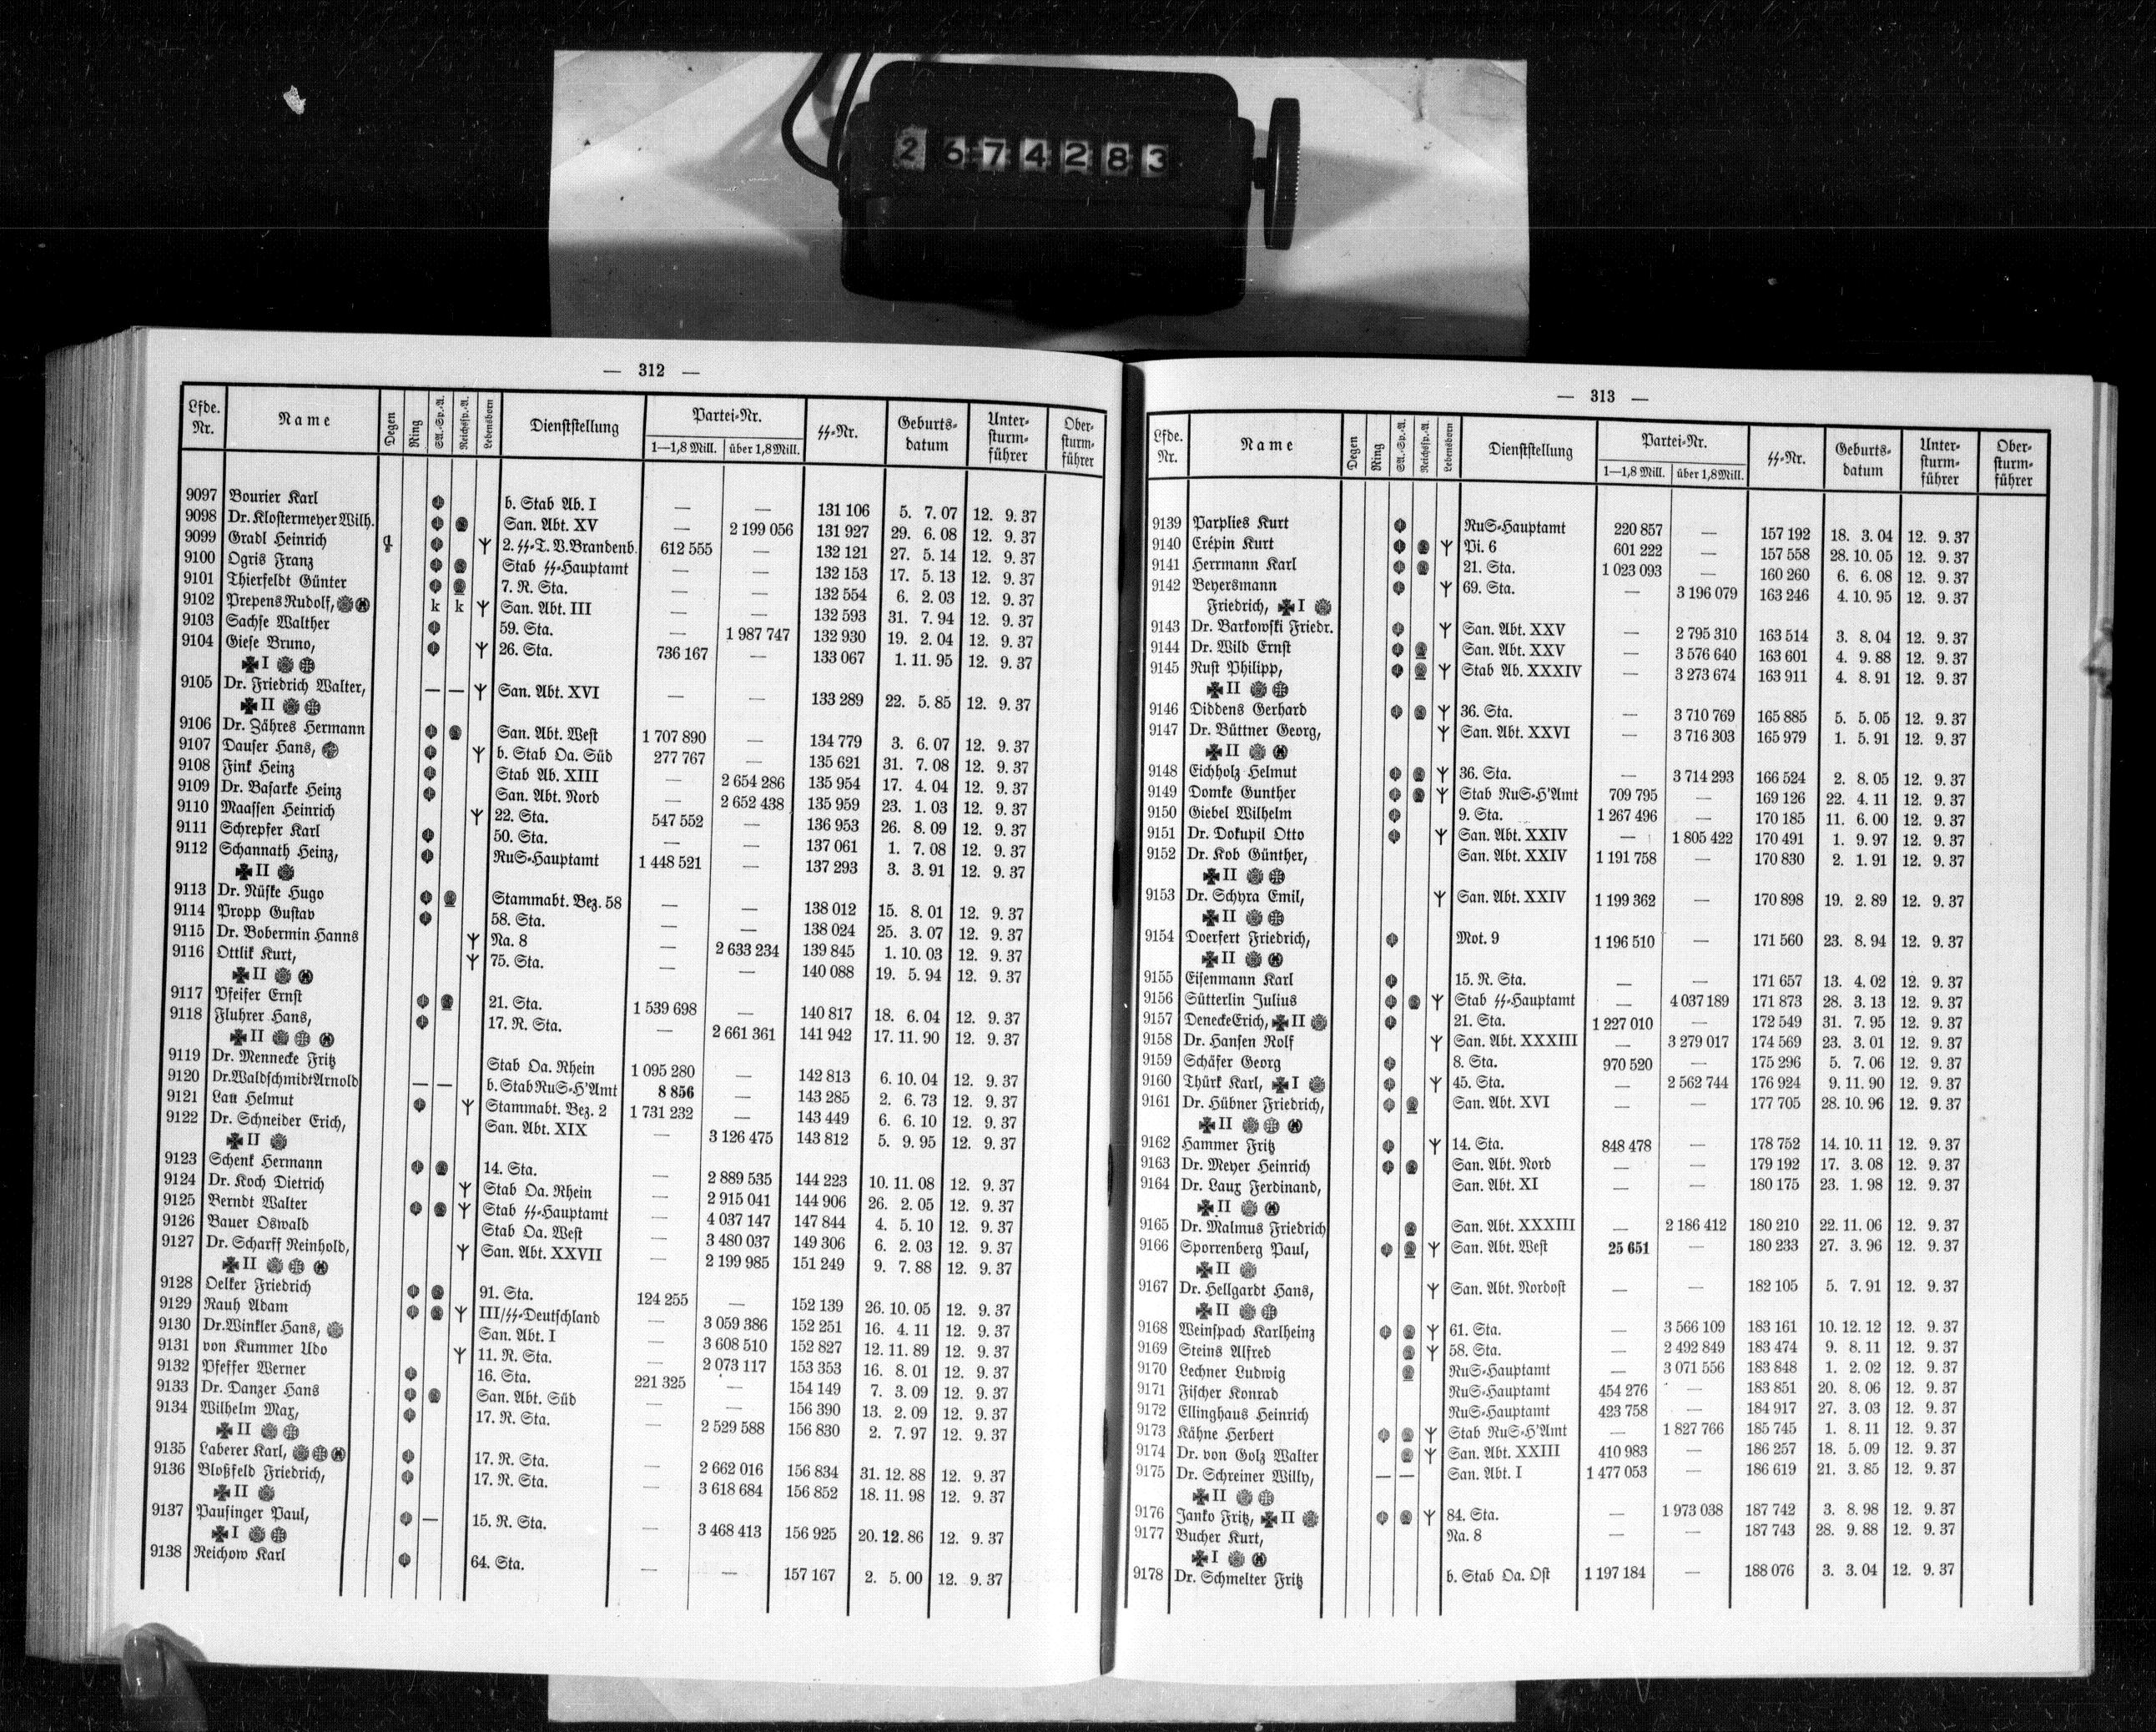 2674283
— 312 —
Lfde. Nr. Name Degen Ring SA.-Sp.-A. Reichsp.-A. Lebensborn Dienststellung Partei-Nr. 1—1,8 Mill. über 1,8 Mill. SS-Nr. Geburts-datum Unter-sturm-führer Ober-sturm-führer
9097 Bourier Karl b. Stab Ab. I — — 131 106 5. 7. 07 12. 9. 37
9098 Dr. Klostermeyer Wilh. San. Abt. XV — 2 199 056 131 927 29. 6. 08 12. 9. 37
9099 Gradl Heinrich 2. SS-T. V. Brandenb. 612 555 — 132 121 27. 5. 14 12. 9. 37
9100 Ogris Franz Stab SS-Hauptamt — — 132 153 17. 5. 13 12. 9. 37
9101 Thierfeldt Günter 7. R. Sta. — — 132 554 6. 2. 03 12. 9. 37
9102 Prepens Rudolf, k k San. Abt. III — — 132 593 31. 7. 94 12. 9. 37
9103 Sachse Walther 59. Sta. — 1 987 747 132 930 19. 2. 04 12. 9. 37
9104 Giese Bruno, 26. Sta. 736 167 — 133 067 1. 11. 95 12. 9. 37
I
9105 Dr. Friedrich Walter, — — San. Abt. XVI — — 133 289 22. 5. 85 12. 9. 37
II
9106 Dr. Zähres Hermann San. Abt. West 1 707 890 — 134 779 3. 6. 07 12. 9. 37
9107 Dauser Hans, b. Stab Oa. Süd 277 767 — 135 621 31. 7. 08 12. 9. 37
9108 Fink Heinz Stab Ab. XIII — 2 654 286 135 954 17. 4. 04 12. 9. 37
9109 Dr. Basarke Heinz San. Abt. Nord — 2 652 438 135 959 23. 1. 03 12. 9. 37
9110 Maassen Heinrich 22. Sta. 547 552 — 136 953 26. 8. 09 12. 9. 37
9111 Schrepfer Karl 50. Sta. — — 137 061 1. 7. 08 12. 9. 37
9112 Schannath Heinz, RuS-Hauptamt 1 448 521 — 137 293 3. 3. 91 12. 9. 37
II
9113 Dr. Nüske Hugo Stammabt. Bez. 58 — — 138 012 15. 8. 01 12. 9. 37
9114 Propp Gustav 58. Sta. — — 138 024 25. 3. 07 12. 9. 37
9115 Dr. Bobermin Hanns Na. 8 — 2 633 234 139 845 1. 10. 03 12. 9. 37
9116 Ottlik Kurt, 75. Sta. — — 140 088 19. 5. 94 12. 9. 37
II
9117 Pfeifer Ernst 21. Sta. 1 539 698 — 140 817 18. 6. 04 12. 9. 37
9118 Fluhrer Hans, 17. R. Sta. — 2 661 361 141 942 17. 11. 90 12. 9. 37
II
9119 Dr. Mennecke Fritz Stab Oa. Rhein 1 095 280 — 142 813 6. 10. 04 12. 9. 37
9120 Dr. Waldschmidt Arnold — — b. Stab RuS-H'Amt 8 856 — 143 285 2. 6. 73 12. 9. 37
9121 Lau Helmut Stammabt. Bez. 2 1 731 232 — 143 449 6. 6. 10 12. 9. 37
9122 Dr. Schneider Erich, San. Abt. XIX — 3 126 475 143 812 5. 9. 95 12. 9. 37
II
9123 Schenk Hermann 14. Sta. — 2 889 535 144 223 10. 11. 08 12. 9. 37
9124 Dr. Koch Dietrich Stab Oa. Rhein — 2 915 041 144 906 26. 2. 05 12. 9. 37
9125 Berndt Walter Stab SS-Hauptamt — 4 037 147 147 844 4. 5. 10 12. 9. 37
9126 Bauer Oswald Stab Oa. West — 3 480 037 149 306 6. 2. 03 12. 9. 37
9127 Dr. Scharff Reinhold, San. Abt. XXVII — 2 199 985 151 249 9. 7. 88 12. 9. 37
II
9128 Oelker Friedrich 91. Sta. 124 255 — 152 139 26. 10. 05 12. 9. 37
9129 Rauh Adam III/SS-Deutschland — 3 059 386 152 251 16. 4. 11 12. 9. 37
9130 Dr. Winkler Hans, San. Abt. I — 3 608 510 152 827 12. 11. 89 12. 9. 37
9131 von Kummer Udo 11. R. Sta. — 2 073 117 153 353 16. 8. 01 12. 9. 37
9132 Pfeffer Werner 16. Sta. 221 325 — 154 149 7. 3. 09 12. 9. 37
9133 Dr. Danzer Hans San. Abt. Süd — — 156 390 13. 2. 09 12. 9. 37
9134 Wilhelm Max, 17. R. Sta. — 2 529 588 156 830 2. 7. 97 12. 9. 37
II
9135 Laberer Karl, 17. R. Sta. — 2 662 016 156 834 31. 12. 88 12. 9. 37
9136 Bloßfeld Friedrich, 17. R. Sta. — 3 618 684 156 852 18. 11. 98 12. 9. 37
II
9137 Pausinger Paul, — 15. R. Sta. — 3 468 413 156 925 20. 12. 86 12. 9. 37
I
9138 Reichow Karl 64. Sta. — — 157 167 2. 5. 00 12. 9. 37
— 313 —
Lfde. Nr. Name Degen Ring SA.-Sp.-A. Reichsp.-A. Lebensborn Dienststellung Partei-Nr. 1—1,8 Mill. über 1,8 Mill. SS-Nr. Geburts-datum Unter-sturm-führer Ober-sturm-führer
9139 Parplies Kurt RuS-Hauptamt 220 857 — 157 192 18. 3. 04 12. 9. 37
9140 Crépin Kurt Pi. 6 601 222 — 157 558 28. 10. 05 12. 9. 37
9141 Herrmann Karl 21. Sta. 1 023 093 — 160 260 6. 6. 08 12. 9. 37
9142 Beyersmann 69. Sta. — 3 196 079 163 246 4. 10. 95 12. 9. 37
Friedrich, I
9143 Dr. Barkowski Friedr. San. Abt. XXV — 2 795 310 163 514 3. 8. 04 12. 9. 37
9144 Dr. Wild Ernst San. Abt. XXV — 3 576 640 163 601 4. 9. 88 12. 9. 37
9145 Rust Philipp, Stab Ab. XXXIV — 3 273 674 163 911 4. 8. 91 12. 9. 37
II
9146 Diddens Gerhard 36. Sta. — 3 710 769 165 885 5. 5. 05 12. 9. 37
9147 Dr. Büttner Georg, San. Abt. XXVI — 3 716 303 165 979 1. 5. 91 12. 9. 37
II
9148 Eichholz Helmut 36. Sta. — 3 714 293 166 524 2. 8. 05 12. 9. 37
9149 Domke Gunther Stab RuS-H'Amt 709 795 — 169 126 22. 4. 11 12. 9. 37
9150 Giebel Wilhelm 9. Sta. 1 267 496 — 170 185 11. 6. 00 12. 9. 37
9151 Dr. Dokupil Otto San. Abt. XXIV — 1 805 422 170 491 1. 9. 97 12. 9. 37
9152 Dr. Kob Günther, San. Abt. XXIV 1 191 758 — 170 830 2. 1. 91 12. 9. 37
II
9153 Dr. Schyra Emil, San. Abt. XXIV 1 199 362 — 170 898 19. 2. 89 12. 9. 37
II
9154 Doerfert Friedrich, Mot. 9 1 196 510 — 171 560 23. 8. 94 12. 9. 37
II
9155 Eisenmann Karl 15. R. Sta. — — 171 657 13. 4. 02 12. 9. 37
9156 Sütterlin Julius Stab SS-Hauptamt — 4 037 189 171 873 28. 3. 13 12. 9. 37
9157 Denecke Erich, II 21. Sta. 1 227 010 — 172 549 31. 7. 95 12. 9. 37
9158 Dr. Hansen Rolf San. Abt. XXXIII — 3 279 017 174 569 23. 3. 01 12. 9. 37
9159 Schäfer Georg 8. Sta. 970 520 — 175 296 5. 7. 06 12. 9. 37
9160 Thürk Karl, I 45. Sta. — 2 562 744 176 924 9. 11. 90 12. 9. 37
9161 Dr. Hübner Friedrich, San. Abt. XVI — — 177 705 28. 10. 96 12. 9. 37
II
9162 Hammer Fritz 14. Sta. 848 478 — 178 752 14. 10. 11 12. 9. 37
9163 Dr. Meyer Heinrich San. Abt. Nord — — 179 192 17. 3. 08 12. 9. 37
9164 Dr. Laux Ferdinand, San. Abt. XI — — 180 175 23. 1. 98 12. 9. 37
II
9165 Dr. Malmus Friedrich San. Abt. XXXIII — 2 186 412 180 210 22. 11. 06 12. 9. 37
9166 Sporrenberg Paul, San. Abt. West 25 651 — 180 233 27. 3. 96 12. 9. 37
II
9167 Dr. Hellgardt Hans, San. Abt. Nordost — — 182 105 5. 7. 91 12. 9. 37
II
9168 Weinspach Karlheinz 61. Sta. — 3 566 109 183 161 10. 12. 12 12. 9. 37
9169 Steins Alfred 58. Sta. — 2 492 849 183 474 9. 8. 11 12. 9. 37
9170 Lechner Ludwig RuS-Hauptamt — 3 071 556 183 848 1. 2. 02 12. 9. 37
9171 Fischer Konrad RuS-Hauptamt 454 276 — 183 851 20. 8. 06 12. 9. 37
9172 Ellinghaus Heinrich RuS-Hauptamt 423 758 — 184 917 27. 3. 03 12. 9. 37
9173 Kähne Herbert Stab RuS-H'Amt — 1 827 766 185 745 1. 8. 11 12. 9. 37
9174 Dr. von Golz Walter San. Abt. XXIII 410 983 — 186 257 18. 5. 09 12. 9. 37
9175 Dr. Schreiner Willy, — — San. Abt. I 1 477 053 — 186 619 21. 3. 85 12. 9. 37
II
9176 Janko Fritz, II 84. Sta. — 1 973 038 187 742 3. 8. 98 12. 9. 37
9177 Bucher Kurt, Na. 8 — — 187 743 28. 9. 88 12. 9. 37
I
9178 Dr. Schmelter Fritz b. Stab Oa. Ost 1 197 184 — 188 076 3. 3. 04 12. 9. 37